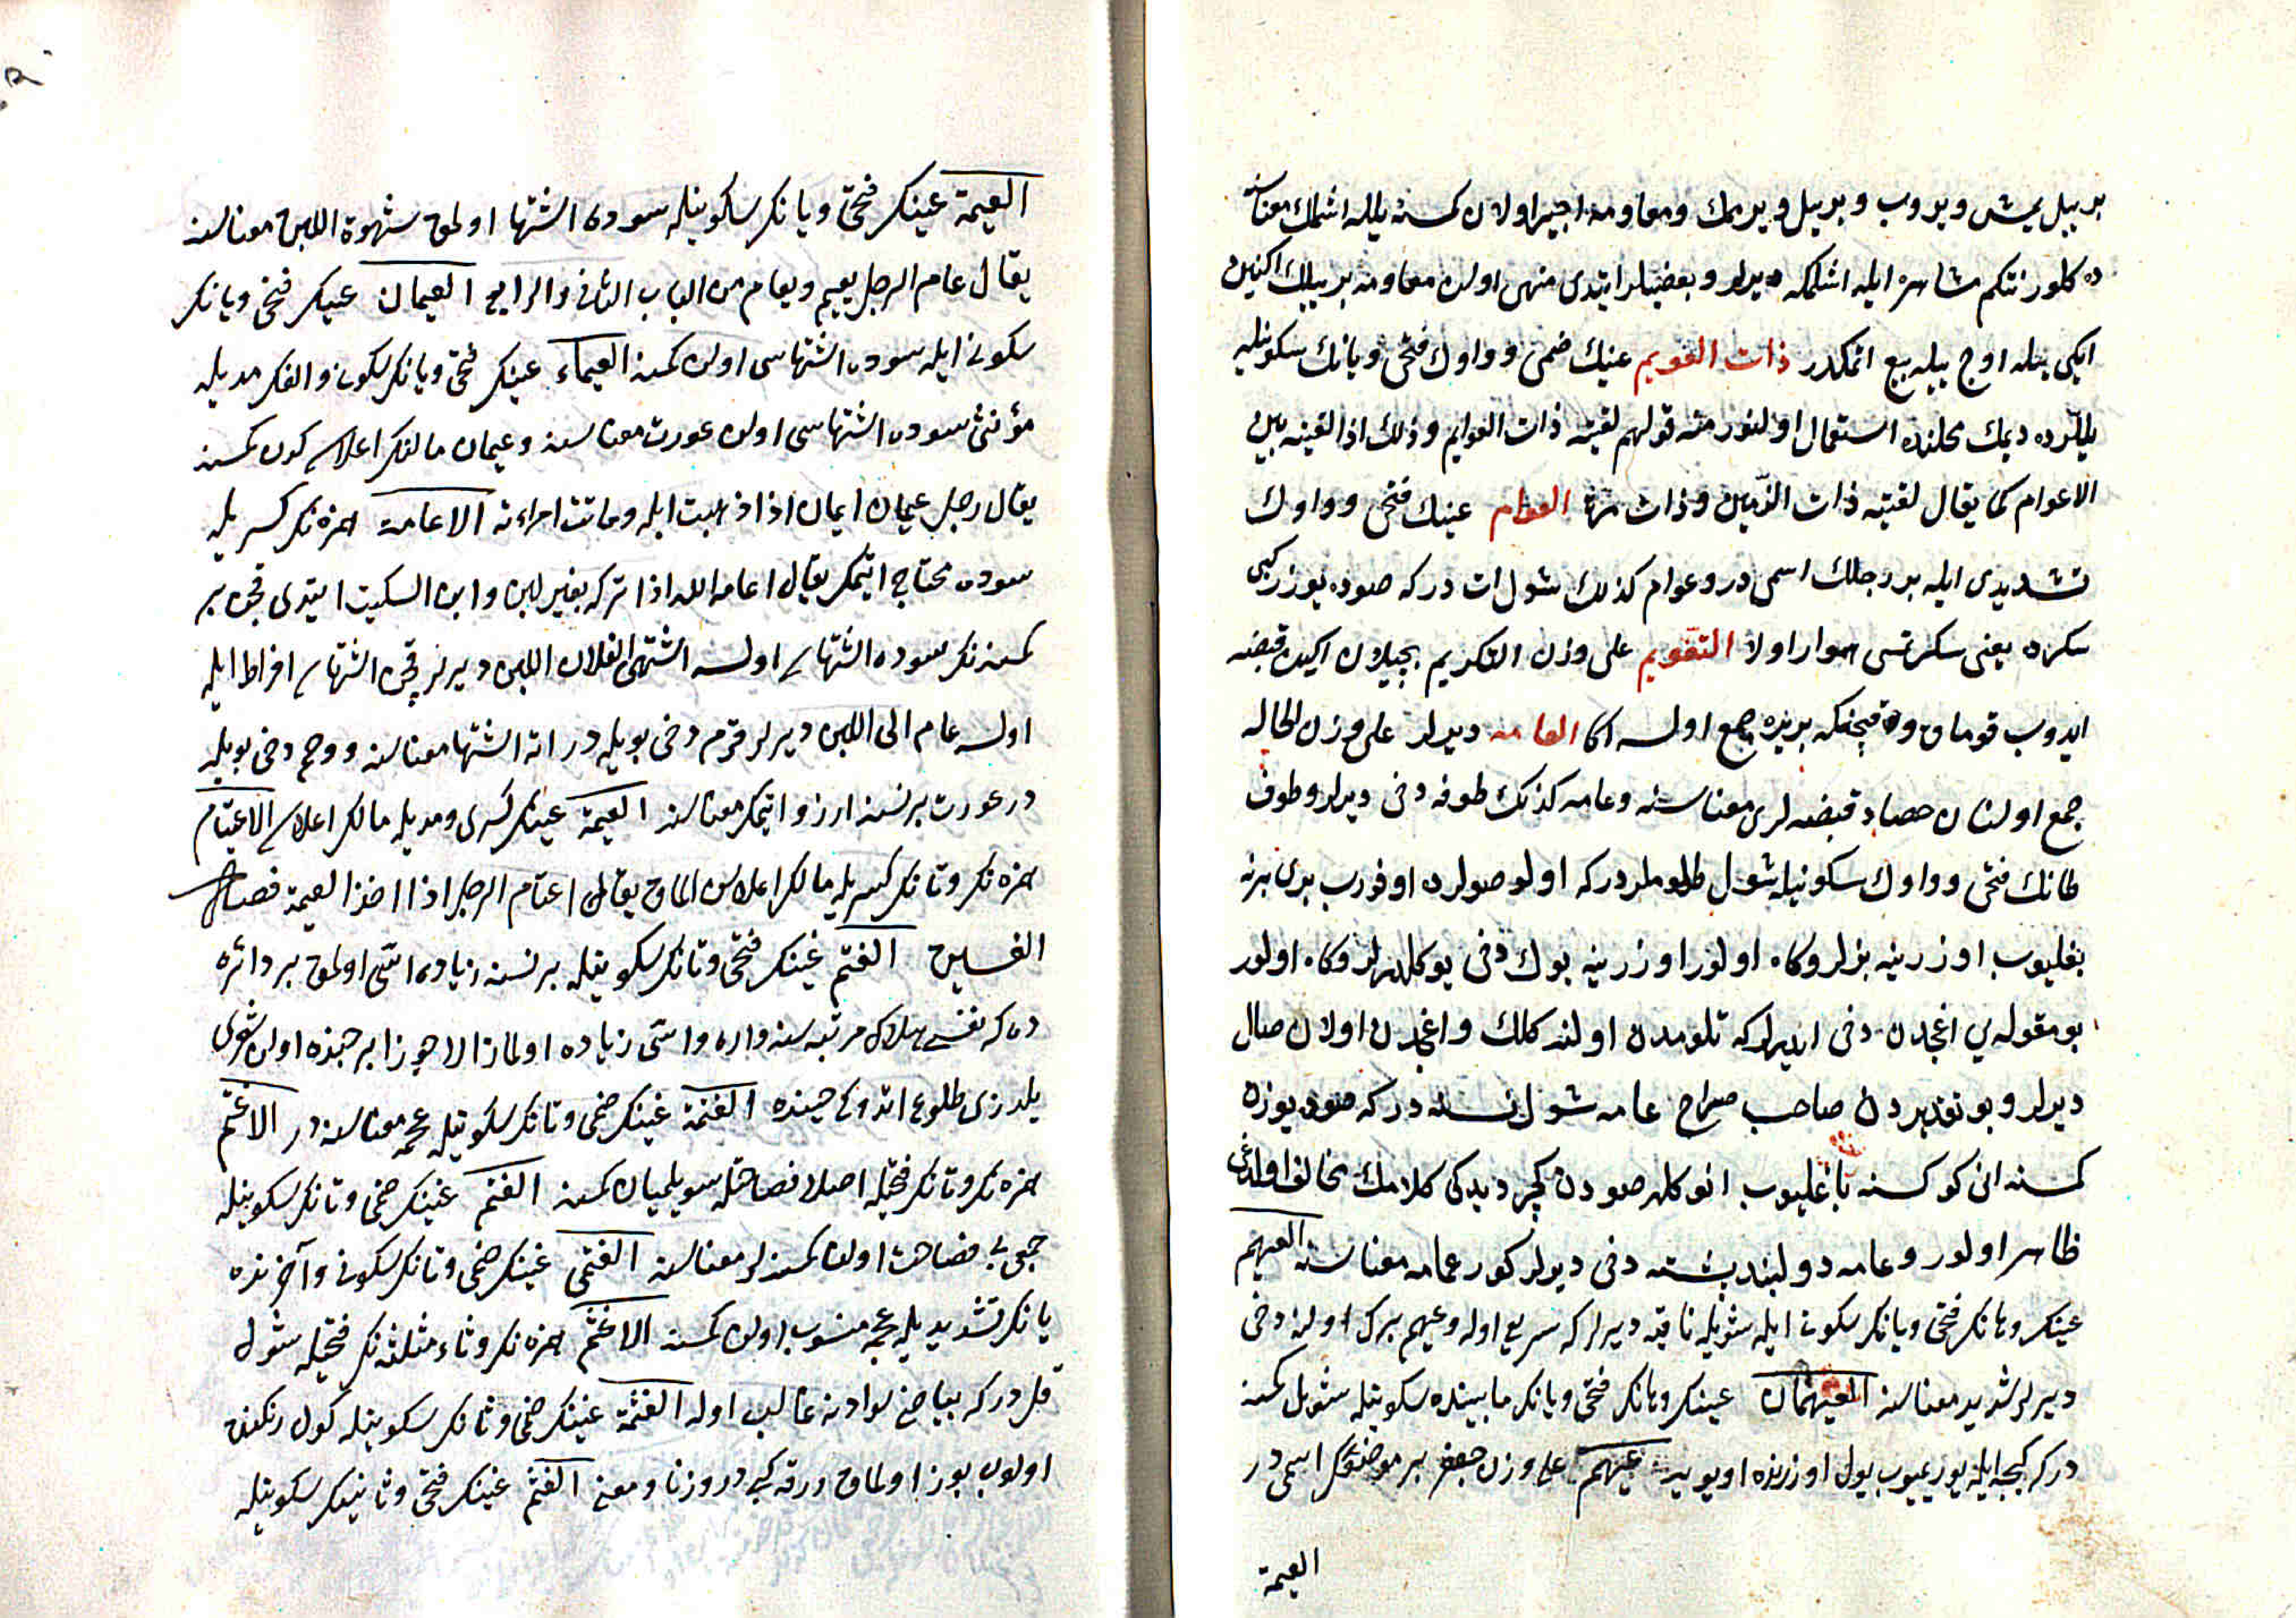 بر ییل یمش ویروب وبر ییل ویرممك ومعاومه اجیر اولان كمسنه ییللە اشلمك معناسنه
ده كلور نتكم مشاهره ایله اشلمكه دیرلر وبعضیلر ایتدی منهی اولان معاومه بر ییللك اكنین
ایكی ییله اوچ ییله بیع اتمكدر ذات العویم عینك ضمی وواوك فتحی ویانك سكونیله
ییللرده دیمك محلنده استعمال اولنور منه قولهم لقیته ذات العوایم وذلك اذا لقیته بین
الاعوام كما یقال لقیته ذات الزمین وذات مرة العوام عینك فتحی وواوك
تشدیدی ایله بر رجلك اسمی در وعوام كذلك شول ات در كه صوده یوزر كبی
سكرده یعنی سكرتسی هموار اولا التعویم علی وزن التكریم بچیلان اكین قبضه
ایدوب قومات وقچنكه بر یره جمع اولسه اكا العامه دیرلر علی وزن الحاله
جمع اولنان حصاد قبضه لری معناسنه وعامه كذلك طوفه دخی دیرلر وطوف
طانك فتحی وواوك سكونیله شول طلوملر در كه اولو صولرده اوفورب بری برنه
بغلیوب اوزرینه بنرلر وكاه اولور اوزرینه یوك دخی یوكلدرلر وكاه اولور
بو مقوله یی اغجدن دخی ایدرلر كه تلومدن اولنه كلك واغجدن اولان صال
دیرلر وبو تقدیردن صاحب صراح عامه شول نسنه در كه صوده یوزه
كمسنه انی كوكسنه باغلیوب انوكله صودن كچر دیدكی كلامك مخالف اولدغی
ظاهر اولور وعامه دولبند بسته دخی دیرلر كور عمامه معناسنه العیهم
عینك وهانك فتحی ویانك سكونی ایله شویله ناقیه دیرلر كه سریع اوله وعیهم برك اولنه دخی
دیرلر شدید معناسنه العیهمان عینك وهانك فتحی ویانك مابینده سكونیله شول كمسنه
در كه كیجه ایله یوریمیوب یول اوزرنده اویویه عیهم علی وزن جعفر بر موضعك اسمی در
العیمة
العیمة عینك فتحی ویانك سكونیله سوده اشتها اولمق شهوة اللبن معناسنه
یقال عام الرجل یعیم ویعام من الباب الثانی والرابع العیمان عینك فتحی ویانك
سكونی ایله سوده اشتهاسی اولان كمسنه العیماء عینك فتحی ویانك سكونی والفك مدیله
مؤنثی سوده اشتهاسی اولان عورت معناسنه وعیمان مالنك اعلاسی كدن كمسنه
یقال رجل عیمان ایمان اذا ذهبت ابله وماتت امرأته الاعامة همزه نك كسریله
سوده محتاج ایتمك یقال اعامه الله اذا تركه بغیر لبن وابن السكیت ایتدی قچن بر
كمسنه نك سوده اشتهاسی اولسه اشتهی فلان اللبن دیرلر قچن اشتهاسی افراط ایله
اولسه عام الی اللبن دیرلر قرم دخی بویله در اته اشتها معناسنه ووحم دخی بویله
در عورت بر نسنه ارزو ایتمك معناسنه العیمة عینك كسری ومدیله مالك اعلاسی الاعتیام
همزه نك وتانك كسریله مالك اعلاسن المق یقال اعتام الرجل اذا اخذ العیمة فصل
الغین الغتم غینك فتحی وتانك سكونیله بر نسنه زیاده اسی اولمق بر دائره
ده كه نفسی هلاك مرتبه سنه واره واسی زیاده اولماز الا جوزا برجنده اولان شعری
یلدزی طلوع اتدوكی حینده الغتمة غینك ضمی وتانك سكونیله عجمه معناسنه در الاغتم
همزه نك وتانك فتحیله اصلا فصاحتله سویلمیان كمسنه الغتم غینك ضمی وتانك سكونیله
جمعی بی فصاحت اولان كمسنه لر معناسنه الغتمی غینك ضمی وتانك سكونی وآخرنده
یانك تشدیدیله عجمه منسوب اولان كمسنه الاغثم همزه نك وثاء مثلثه نك فتحیله شول
قل در كه بیاضی سوادنه غالب اوله الغثمة غینك ضمی وثانك سكونیله كول رنكنده
اولوب بوز اولمق ورقه كبی در وزنا ومعنی الغثم غینك فتحی وثانینك سكونیله